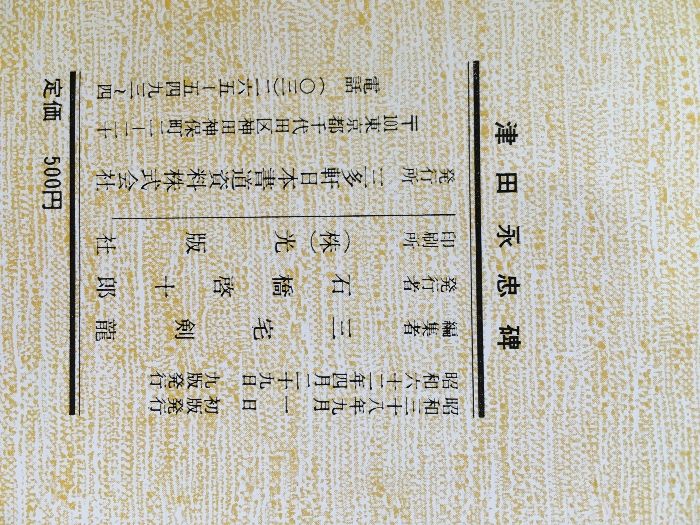 津田永忠碑
昭和三十八年九月一日 初版発行
昭和六十二年四月二十九日 九版発行
編集者 三宅剣龍
発行者 石橋啓十郎
印刷所 (株)光版社
発行所 三多軒日本書道資料株式会社
〒101 東京都千代田区神田神保町二ー二十
電話 (〇三)二六五ー五四九三~四
定価 500円